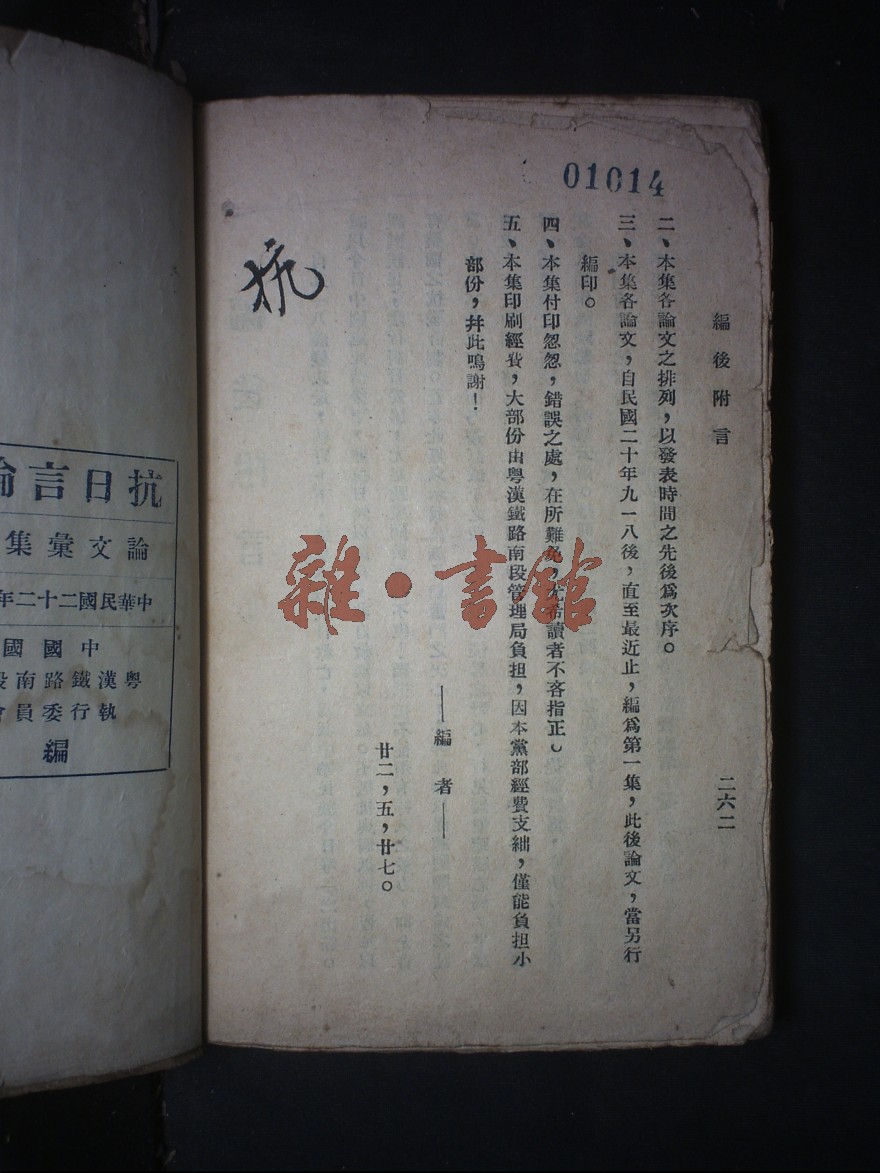 01014
編後附言
二六二
二、本集各論文之排列,以發表時間之先後爲次序。
三、本集各論文,自民國二十年九一八後,直至最近止,編爲第一集,此後論文,當另行
編印。
四、本集付印怱怱,錯誤之處,在所難免,尤希讀者不吝指正。
五、本集印刷經費,大部份由粵漢鐵路南段管理局負担,因本黨部經費支絀,僅能負担小
部份,幷此鳴謝!
——編者——
廿二,五,廿七。
抗
雜·書館
抗日言論
論文彙集
中華民國二十二年
中國國
粵漢鐵路南段
執行委員會
編